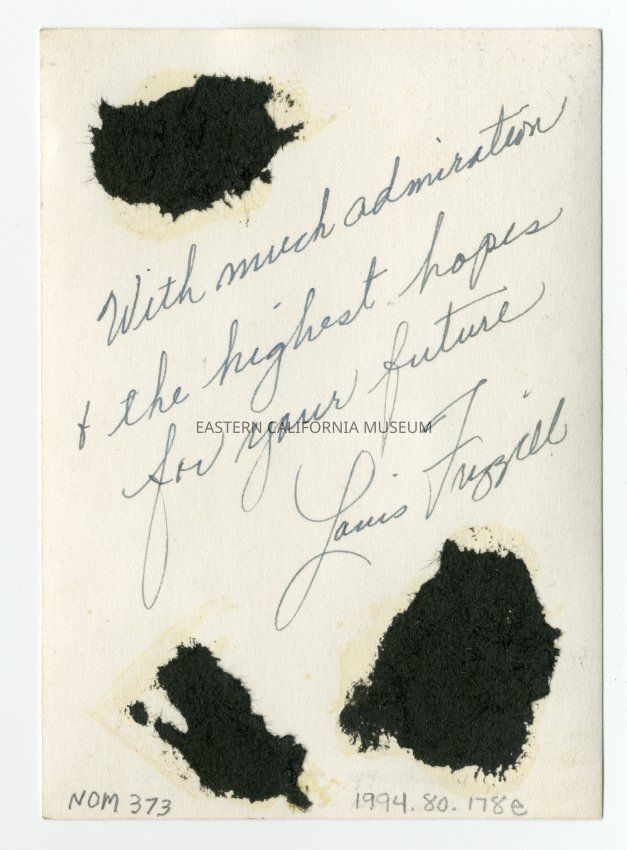 With much admiration
& the highest hopes
for your future
EASTERN CALIFORNIA MUSEUM
Louis Frizzell
NOM 373
1994.80.178e